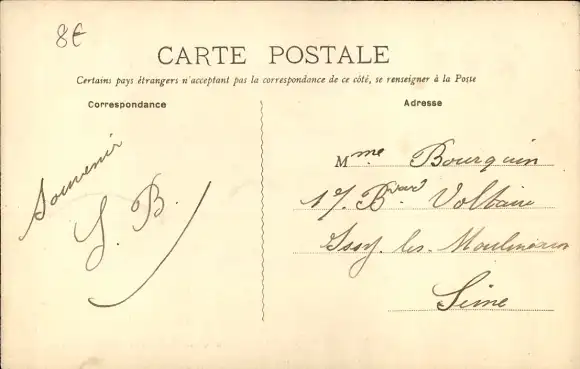 8€
CARTE POSTALE
Certains pays étrangers n'acceptant pas la correspondance de ce côté, se renseigner à la Poste
Correspondance
Souvenir
Adresse
Mme. Bourquin
17 Bvard Voltaire
Issy. les. Moulineaux
Seine